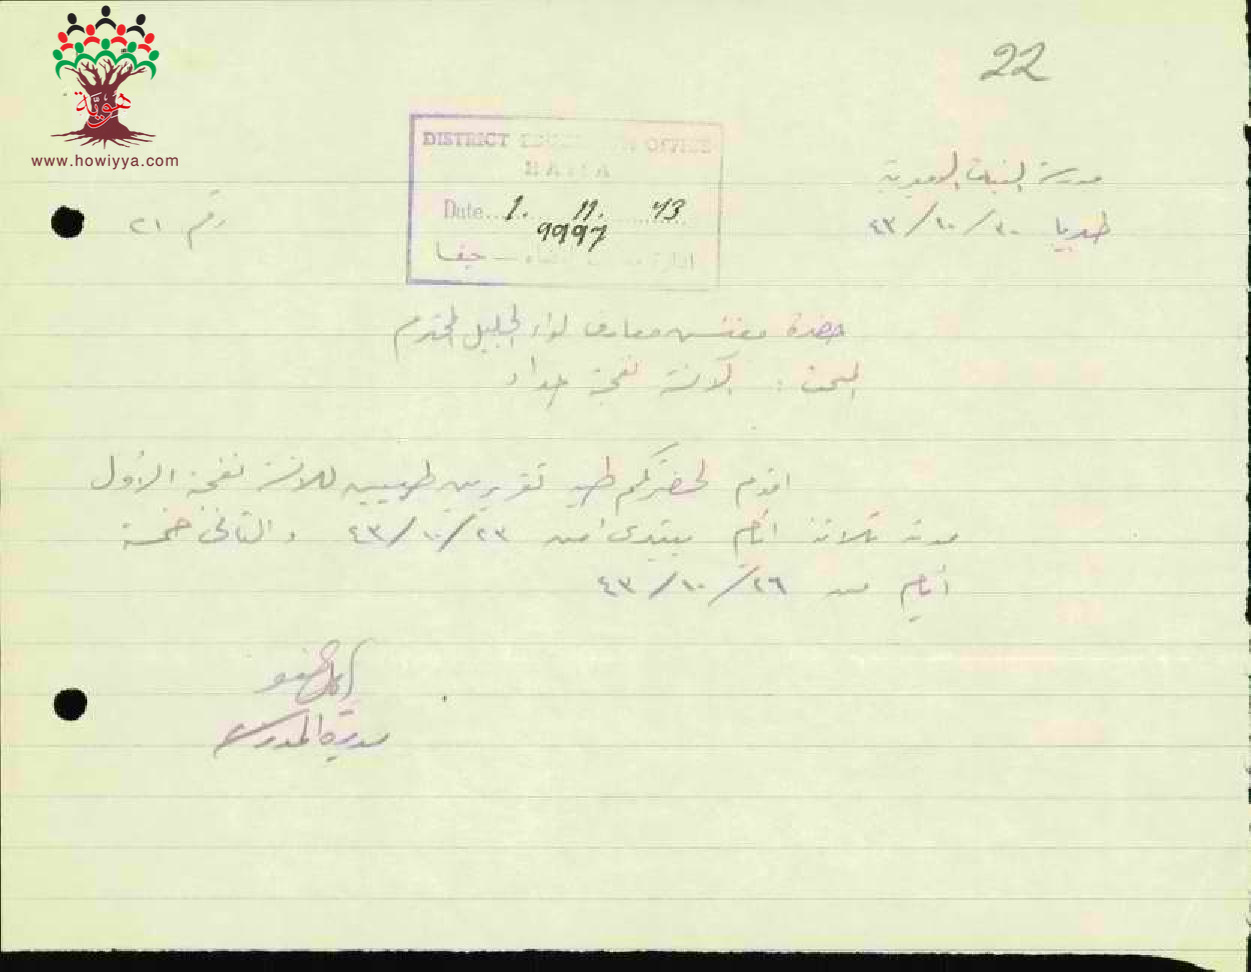 هوية
www.howiyya.com
22
DISTRICT EDUCATION OFFICE
HAIFA
Date 1. 11. 43
9997
ادارة – حيفا
مدرسة البنات الاميرية
طبريا ٣٠/١٠/٤٣
رقم ٢١
حضرة مفتش معارف لواء الجليل المحترم
البحث : الآنسة نفجة حداد
اقدم لحضرتكم طيه تقريرين طبيين للانسة نفجة الاول
مدته ثلاثة أيام يبتدئ من ٢٣/١٠/٤٣ والثاني خمسة
أيام من ٢٦/١٠/٤٣
مديرة المدرسة